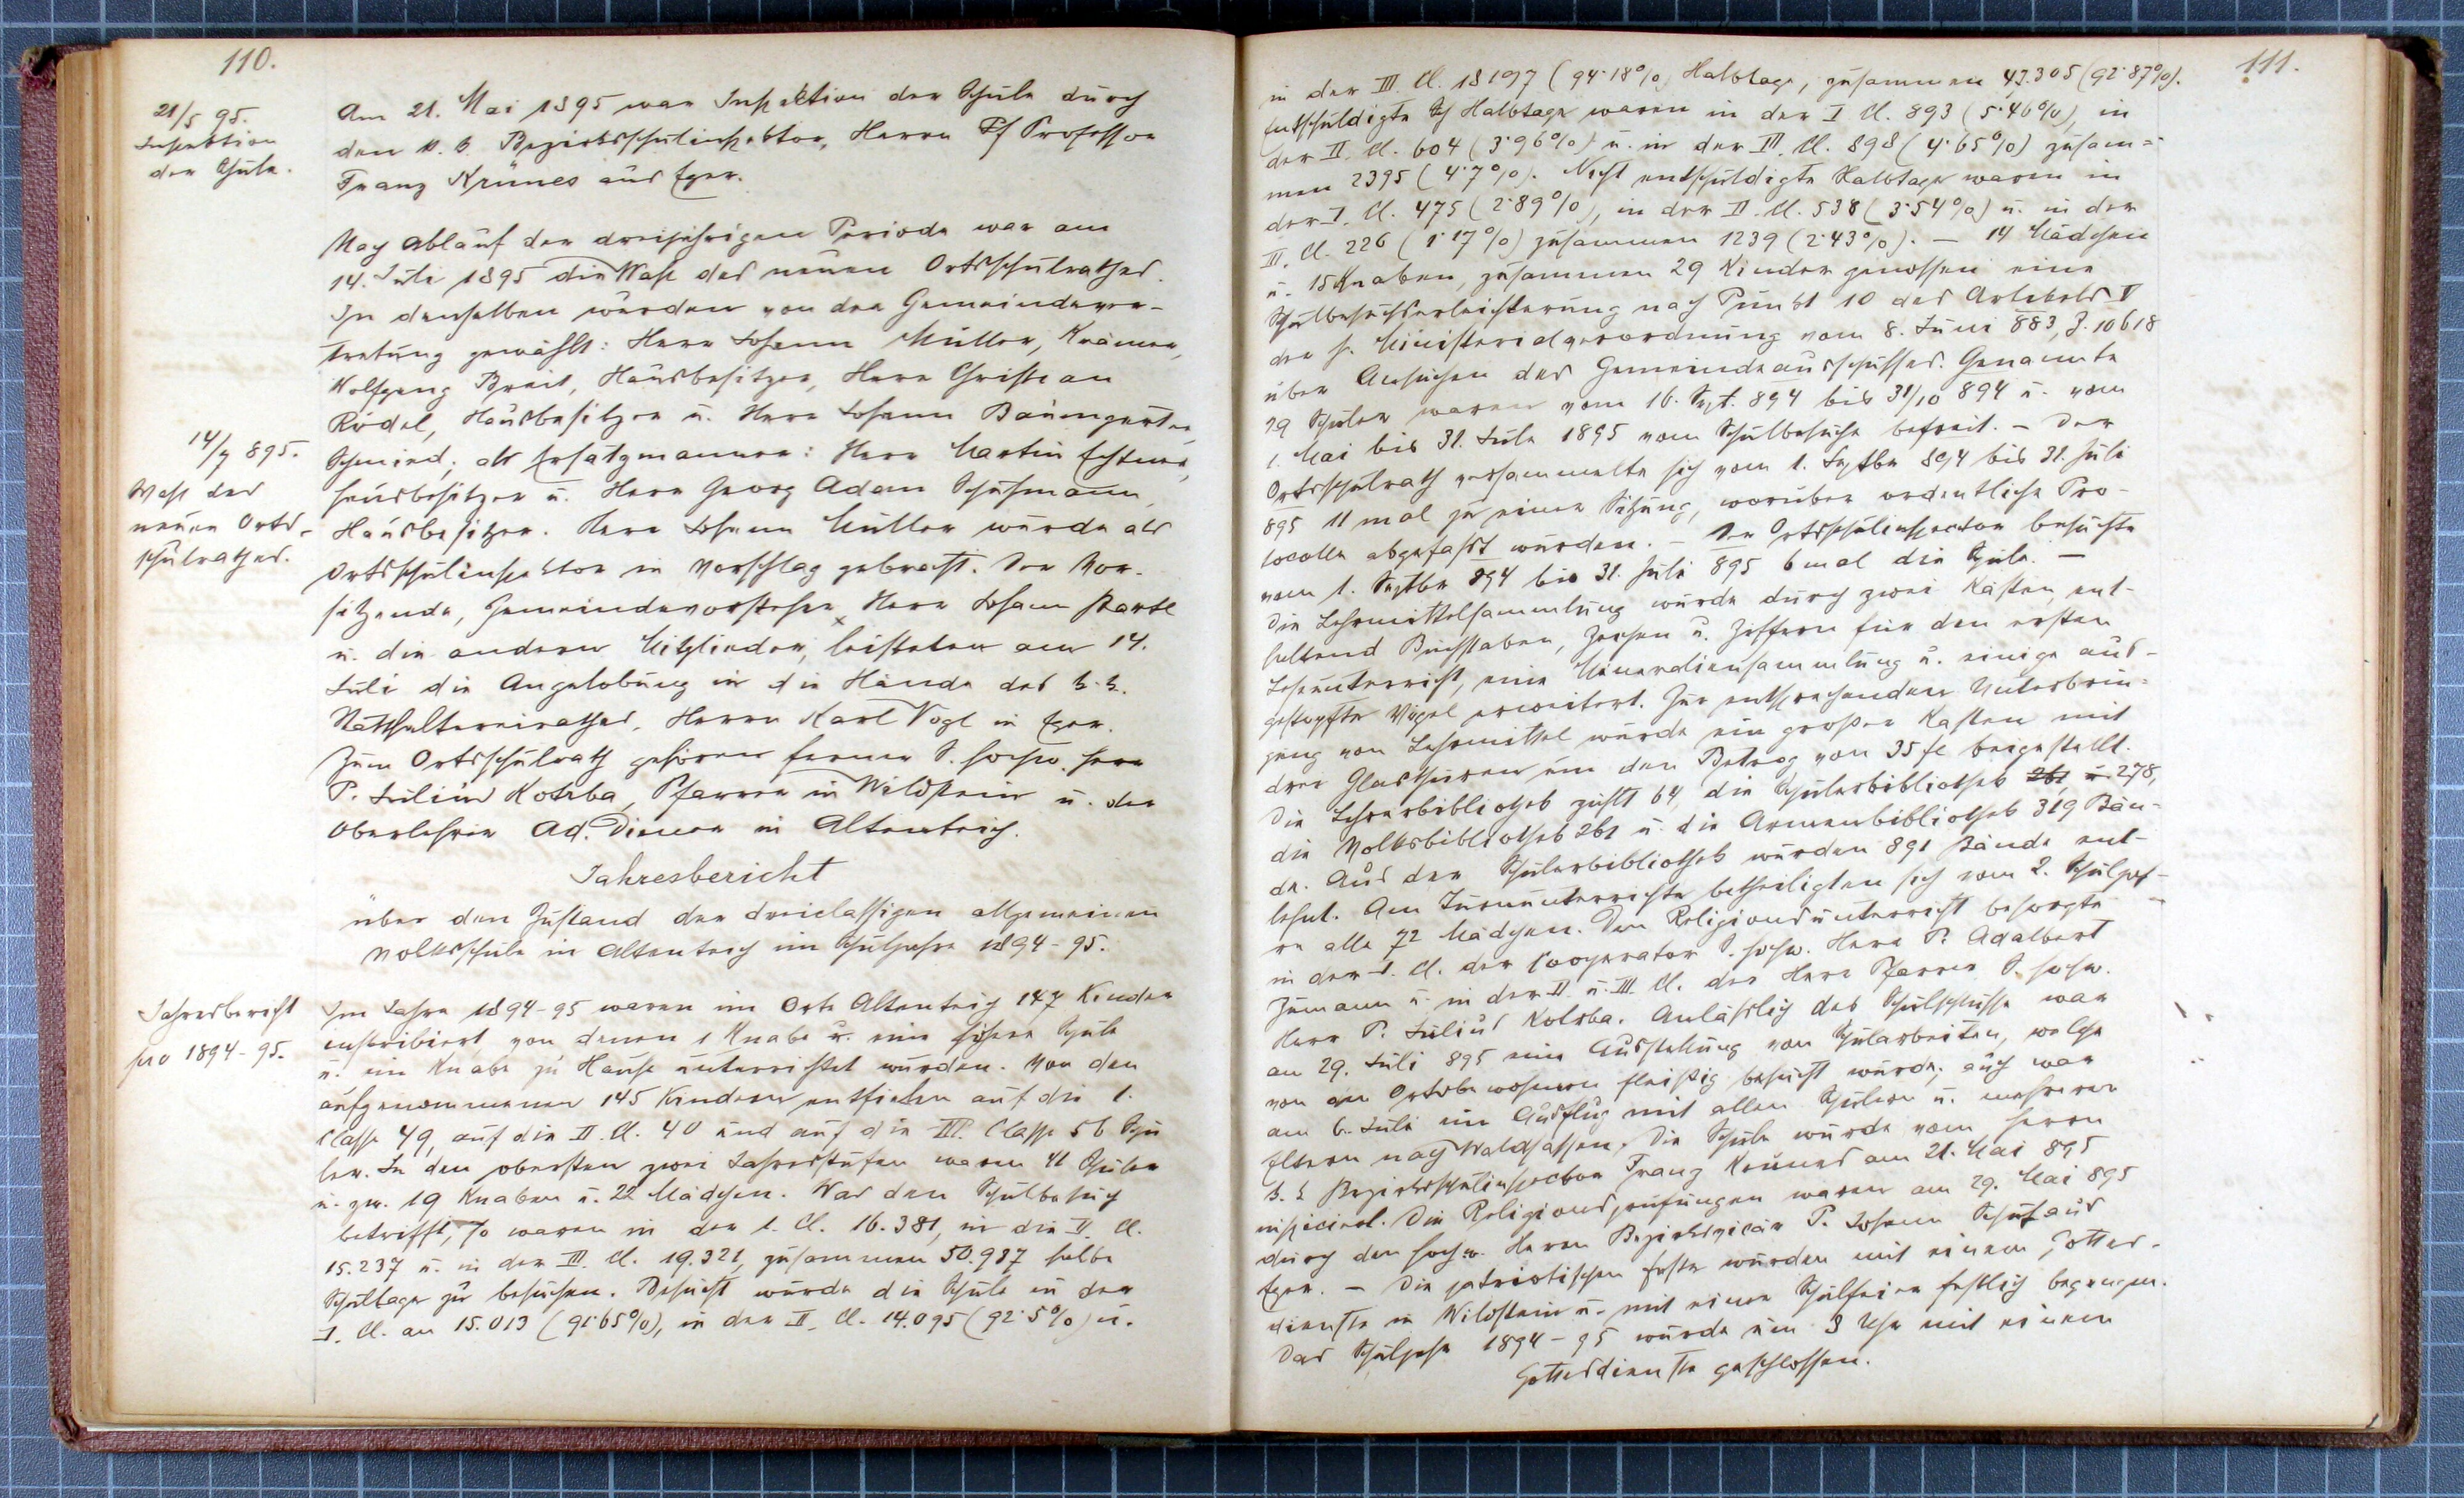 110.
21/5 95.
Inspektion
der Schule.
Am 21. Mai 1895 war Inspektion der Schule durch
den k. k. Bezirksschulinspektor, Herrn Professor
Franz Krünes aus Eger.
Nach Ablauf der dreijährigen Periode war am
14. Juli 1895 die Wahl des neuen Ortsschulrathes.
In denselben wurden von der Gemeindever-
tretung gewählt: Herr Johann Müller, Krämer,
Wolfgang Breit, Hausbesitzer, Herr Christian
Rödel, Hausbesitzer u. Herr Johann Baumgarten,
14/7 895.
Wahl des
neuen Orts-
schulrathes.
Schmied; als Ersatzmänner: Herr Martin
Hausbesitzer u. Herr Georg Adam Schuhmann,
Hausbesitzer. Herr Johann Müller wurde als
Ortsschulinspektor in Vorschlag gebracht. Der Vor-
sitzende, Gemeindevorsteher, Herr Johann
u. die anderen Mitglieder, leisteten am 14.
Juli die Angelobung in die Hände des k. k.
Statthaltereirathes, Herrn Karl Vogl in Eger.
Zum Ortsschulrath gehören ferner S. Hochw. Herr
P. Julius Kotrba, Pfarrer in Wildstein u. der
Oberlehrer Ad. Diener in Altenteich.
Jahresbericht
über den Zustand der dreiclassigen allgemeinen
Volksschule in Altenteich im Schuljahre 1894-95.
Jahresbericht
pro 1894-95.
Im Jahre 1894-95 waren im Orte Altenteich 147 Kinder
inskribiert, von denen 1 Knabe u. eine höhere Schule
u. ein Knabe zu Hause unterrichtet wurden. Von den
aufgenommenen 145 Kindern entfielen auf die 1.
Classe 49, auf die II. Cl. 40 und auf die III. Classe 56 Schü
ler. In den obersten zwei Jahresstufen waren 41 Schüler
u. zw. 19 Knaben u. 22 Mädchen. Was den Schulbesuch
betrifft, so waren in der 1. Cl. 16.381, in der II. Cl.
15.237 u. in der III. Cl. 19.321, zusammen 50.987 halbe
Schultage zu besuchen. Besucht wurde die Schule in der
I. Cl. an 15.013 (91·65%), in der II. Cl. 14.095 (92·5%) u.
111.
in der III. Cl. 18197 (94·18%) Halbtage, zusammen 47.305 (92·87%).
Entschuldigte Halbtage waren in der I Cl. 893 (5·46%), in
der II. Cl. 604 (3·96%) u. in der III. Cl. 898 (4·65%) zusam=
men 2395 (4·7%). Nicht entschuldigte Halbtage waren in
der I. Cl. 475 (2·89%), in der II. Cl. 538 (3·54%) u. in der
III. Cl. 226 (1·17%) zusammen 1239 (2·43%). — 14 Mädchen
u. 15 Knaben, zusammen 29 Kinder genossen eine
Schulbesuchserleichterung nach Punkt 10 des Artikels V
der h. Ministerialverordnung vom 8. Juni 883, Z. 10618
über Ansuchen des Gemeindeausschusses. Genannte
29 Schüler waren vom 16. Sept. 894 bis 31/10 894 u. vom
1. Mai bis 31. Juli 1895 vom Schulbesuche befreit. - Der
Ortsschulrath versammelte sich vom 1. Septbr 894 bis 31. Juli
895 11 mal zu einer Sitzung, worüber ordentliche Pro-
tocolle abgefasst wurden. - Der Ortsschulinspector besuchte
vom 1. Septbr 894 bis 31. Juli 895 6 mal die Schule. —
Die Lehrmittelsammlung wurde durch zwei Kästen, ent-
haltend Buchstaben, Zeichen u. Ziffern für den ersten
Leseunterricht, eine Mineraliensammlung u. einige aus-
gestopfte Vögel erweitert. Zur entsprechenden Unterbrin-
gung von Lehrmittel wurde ein großer Kasten mit
drei Glasthüren um den Betrag von 35 fl beigestellt.
Die Lehrerbibliothek zählt 64, die Schülerbibliothek 278,
die Volksbibliothek 261 u. die Armenbibliothek 319 Bän-
de. Aus der Schülerbibliothek wurden 891 Bände ent-
lehnt. Am Turnunterrichte betheiligten sich vom 2. Schuljah-
re alle 72 Mädchen. Den Religionsunterricht besorgte
in der I. Cl. der Cooperator S. Hochw. Herr P. Adalbert
Zemann u. in der II. u. III. Cl. der Herr Pfarrer S. Hochw.
Herr P. Julius Kotrba. Anläßlich des Schulschlusses war
am 29. Juli 895 eine Ausstellung von Schularbeiten, welche
von den Ortsbewohnern fleißig besucht wurde; auch war
am 6. Juli ein Ausflug mit allen Schülern u. mehreren
Eltern nach Waldsassen. Die Schule wurde vom Herrn
k. k. Bezirksschulinspector Franz Krünes am 21. Mai 895
inspiciert. Die Religionsprüfungen waren am 29. Mai 895
durch den Hochw. Herrn Bezirksvicär P. Johann aus
Eger. — Die patriotischen Feste wurden mit einem Gottes-
dienste in Wildstein u. mit einer Schulfeier festlich begangen.
Das Schuljahr 1894-95 wurde um 3 Uhr mit einem
Gottesdienste geschlossen.